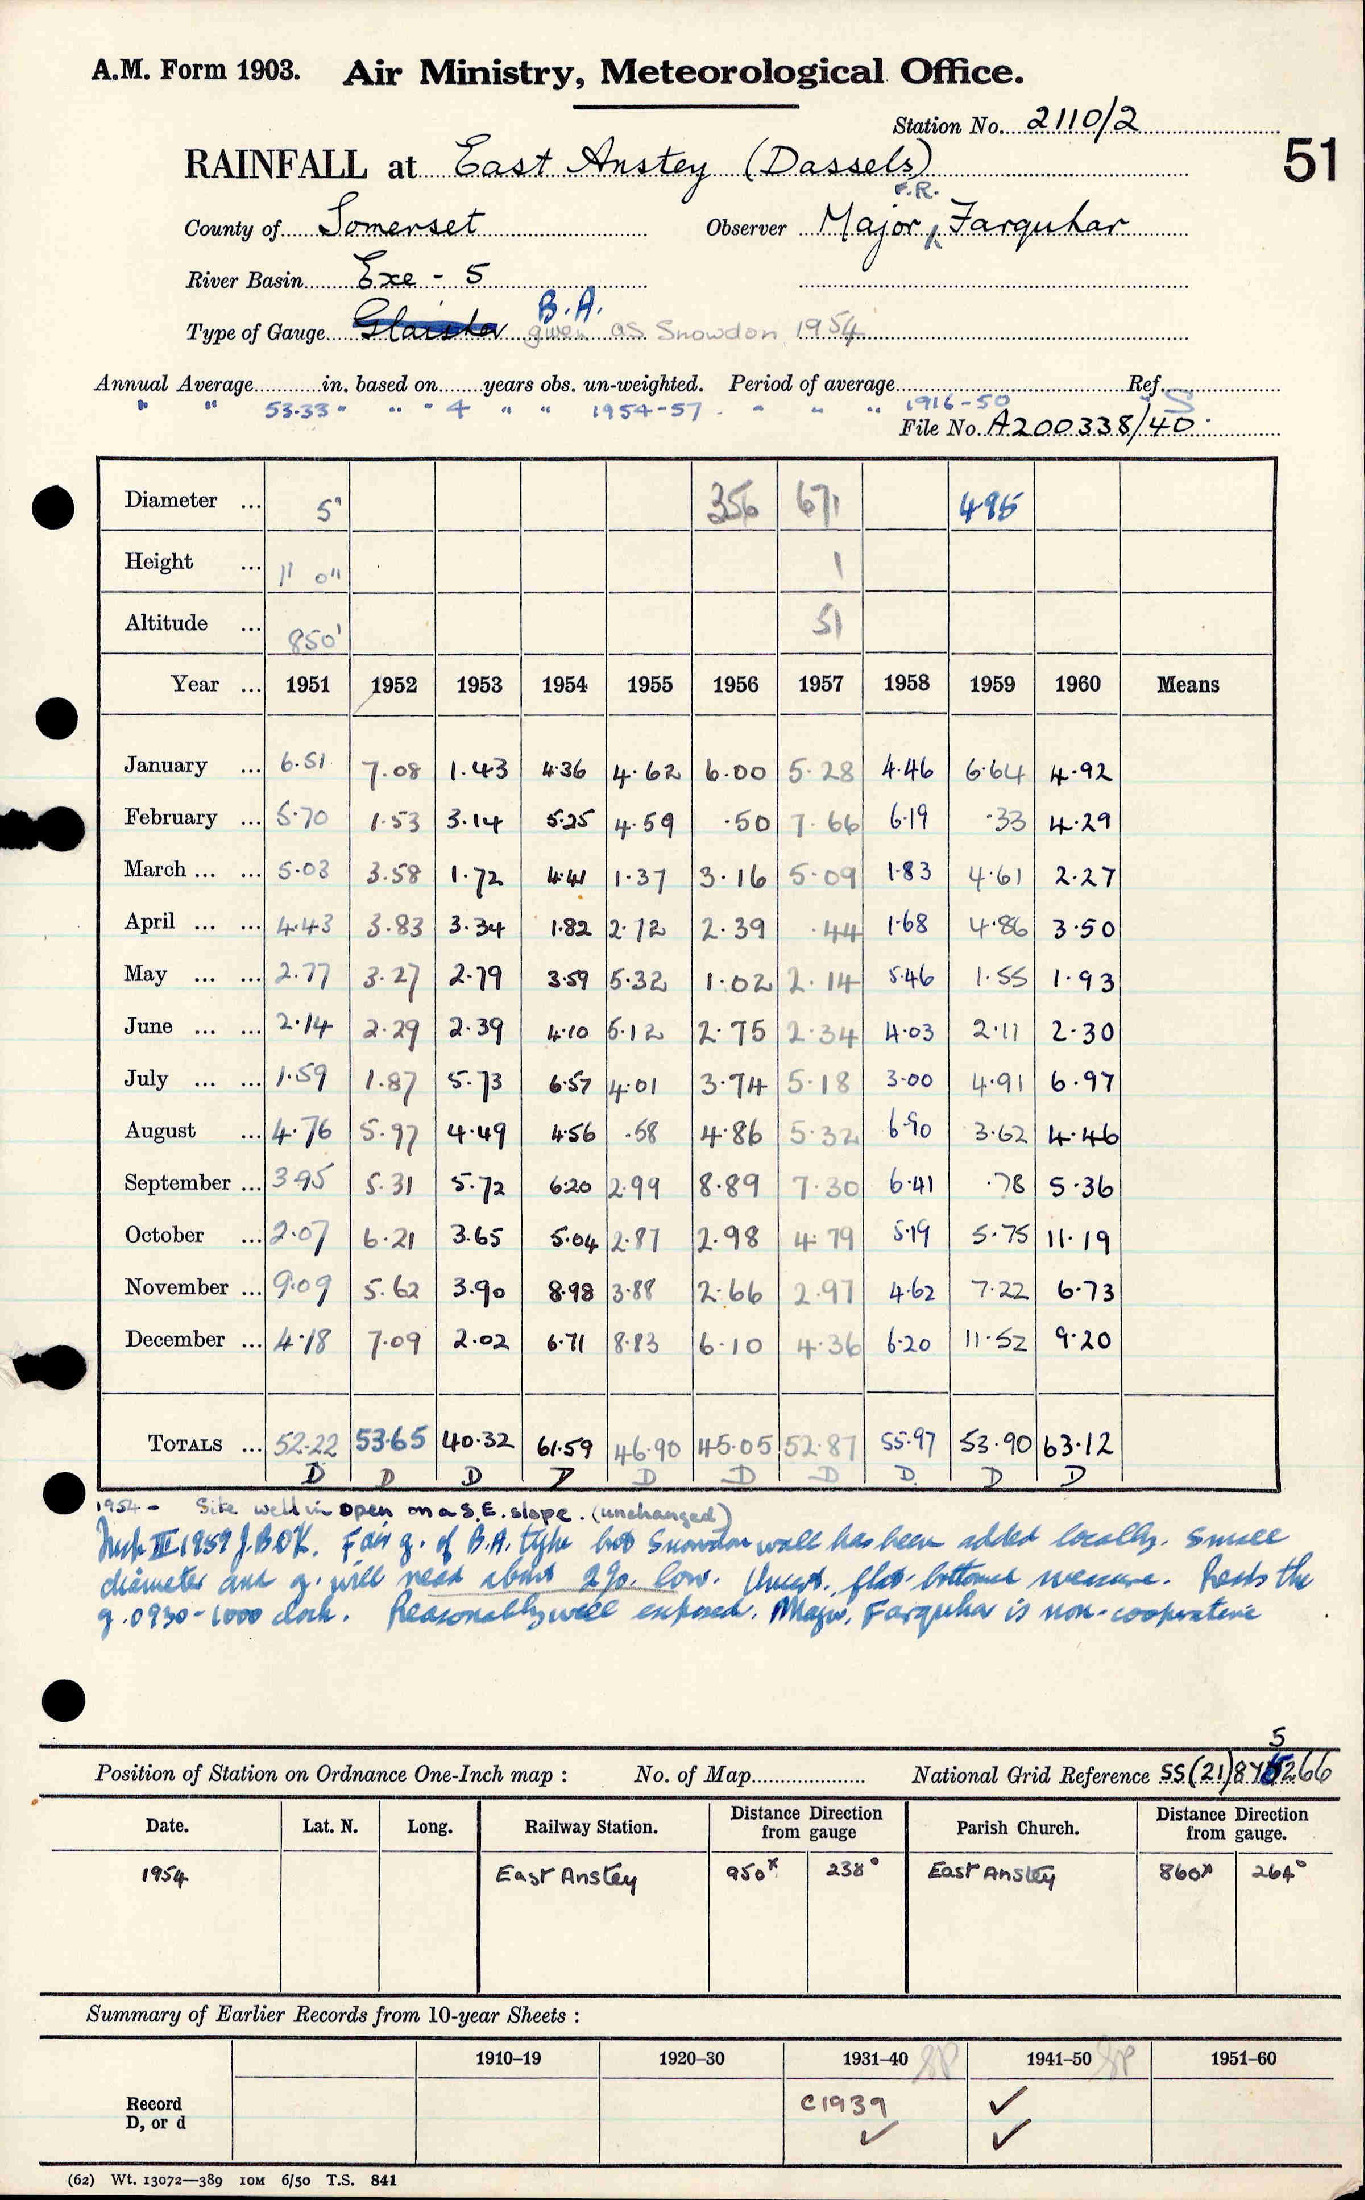 A.M. Form 1903. Air Ministry, Meteorological Office.
Station No. 2110/2
51
RAINFALL at East Anstey (Dassels)
F.R.
County of Somerset Observer Major Farquhar
River Basin Exe - 5
B.A.
Type of Gauge Glaisher given as Snowdon 1954
Annual Average in. based on years obs. un-weighted. Period of average Ref.
" " 53.33 " " " 4 " " 1954-57. " " " 1916-50 S
File No. A200338/40
Diameter ... 5" 356 671 495
Height ... 1' 0" 1
Altitude ... 850' 51
Year ... 1951 1952 1953 1954 1955 1956 1957 1958 1959 1960 Means
January ... 6.51 7.08 1.43 4.36 4.62 6.00 5.28 4.46 6.64 4.92
February ... 5.70 1.53 3.14 5.25 4.59 .50 7.66 6.19 .33 4.29
March ... ... 5.03 3.58 1.72 4.41 1.37 3.16 5.09 1.83 4.61 2.27
April ... ... 4.43 3.83 3.34 1.82 2.72 2.39 .44 1.68 4.86 3.50
May ... ... 2.77 3.27 2.79 3.59 5.32 1.02 2.14 5.46 1.55 1.93
June ... ... 2.14 2.29 2.39 4.10 5.12 2.75 2.34 4.03 2.11 2.30
July ... ... 1.59 1.87 5.73 6.57 4.01 3.74 5.18 3.00 4.91 6.97
August ... 4.76 5.97 4.49 4.56 .58 4.86 5.32 6.90 3.62 4.46
September ... 3.95 5.31 5.72 6.20 2.99 8.89 7.30 6.41 .78 5.36
October ... 2.07 6.21 3.65 5.04 2.87 2.98 4.79 5.19 5.75 11.19
November ... 9.09 5.62 3.90 8.98 3.88 2.66 2.97 4.62 7.22 6.73
December ... 4.18 7.09 2.02 6.71 8.83 6.10 4.36 6.20 11.52 9.20
TOTALS ... 52.22 53.65 40.32 61.59 46.90 45.05 52.87 55.97 53.90 63.12
D D D D D D D D D D
1954 - Site well in open on a S.E. slope. (unchanged)
Insp III 1959 J.BOK. Fair g. of B.A. type but Snowdon wall has been added locally. Small
diameter and g. will read about 2%. low. flat-bottomed measure. Reads the
g. 0930-1000 clock. Reasonably well exposed. Major Farquhar is non-cooperative
5
Position of Station on Ordnance One-Inch map : No. of Map National Grid Reference SS(21)875266
Date. Lat. N. Long. Railway Station. Distance Direction from gauge Parish Church. Distance Direction from gauge.
1954 East Anstey 950x 238° East Anstey 860x 264°
Summary of Earlier Records from 10-year Sheets :
1910–19 1920–30 1931–40 1941–50 1951–60
Record c1939 ✓
D, or d ✓ ✓
(62) Wt. 13072—389 IOM 6/50 T.S. 841